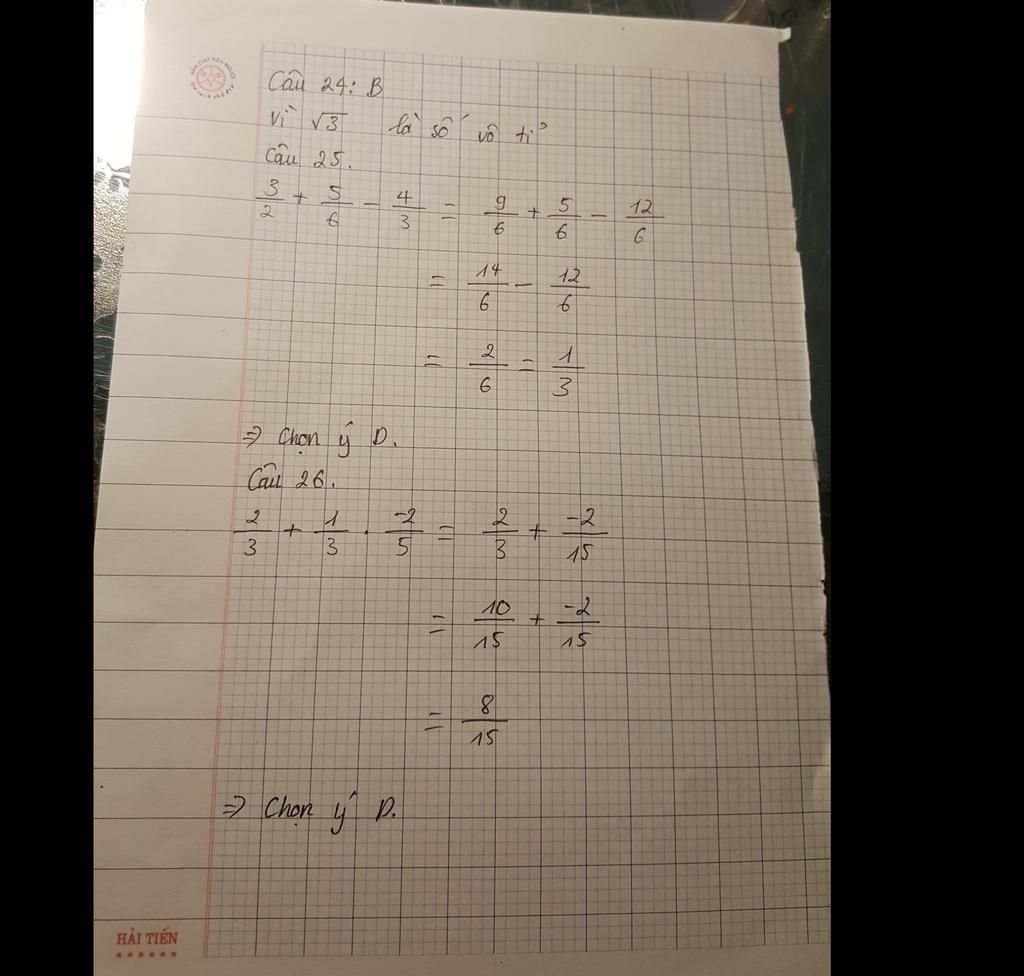 Câu 24: B
Vì √3 là số vô tỉ
Câu 25.
3/2 + 5/6 - 4/3 = 9/6 + 5/6 - 12/6
= 14/6 - 12/6
= 2/6 = 1/3
=> Chọn ý D.
Câu 26.
2/3 + 1/3 . -2/5 = 2/3 + -2/15
= 10/15 + -2/15
= 8/15
=> Chọn ý D.
HẢI TIẾN